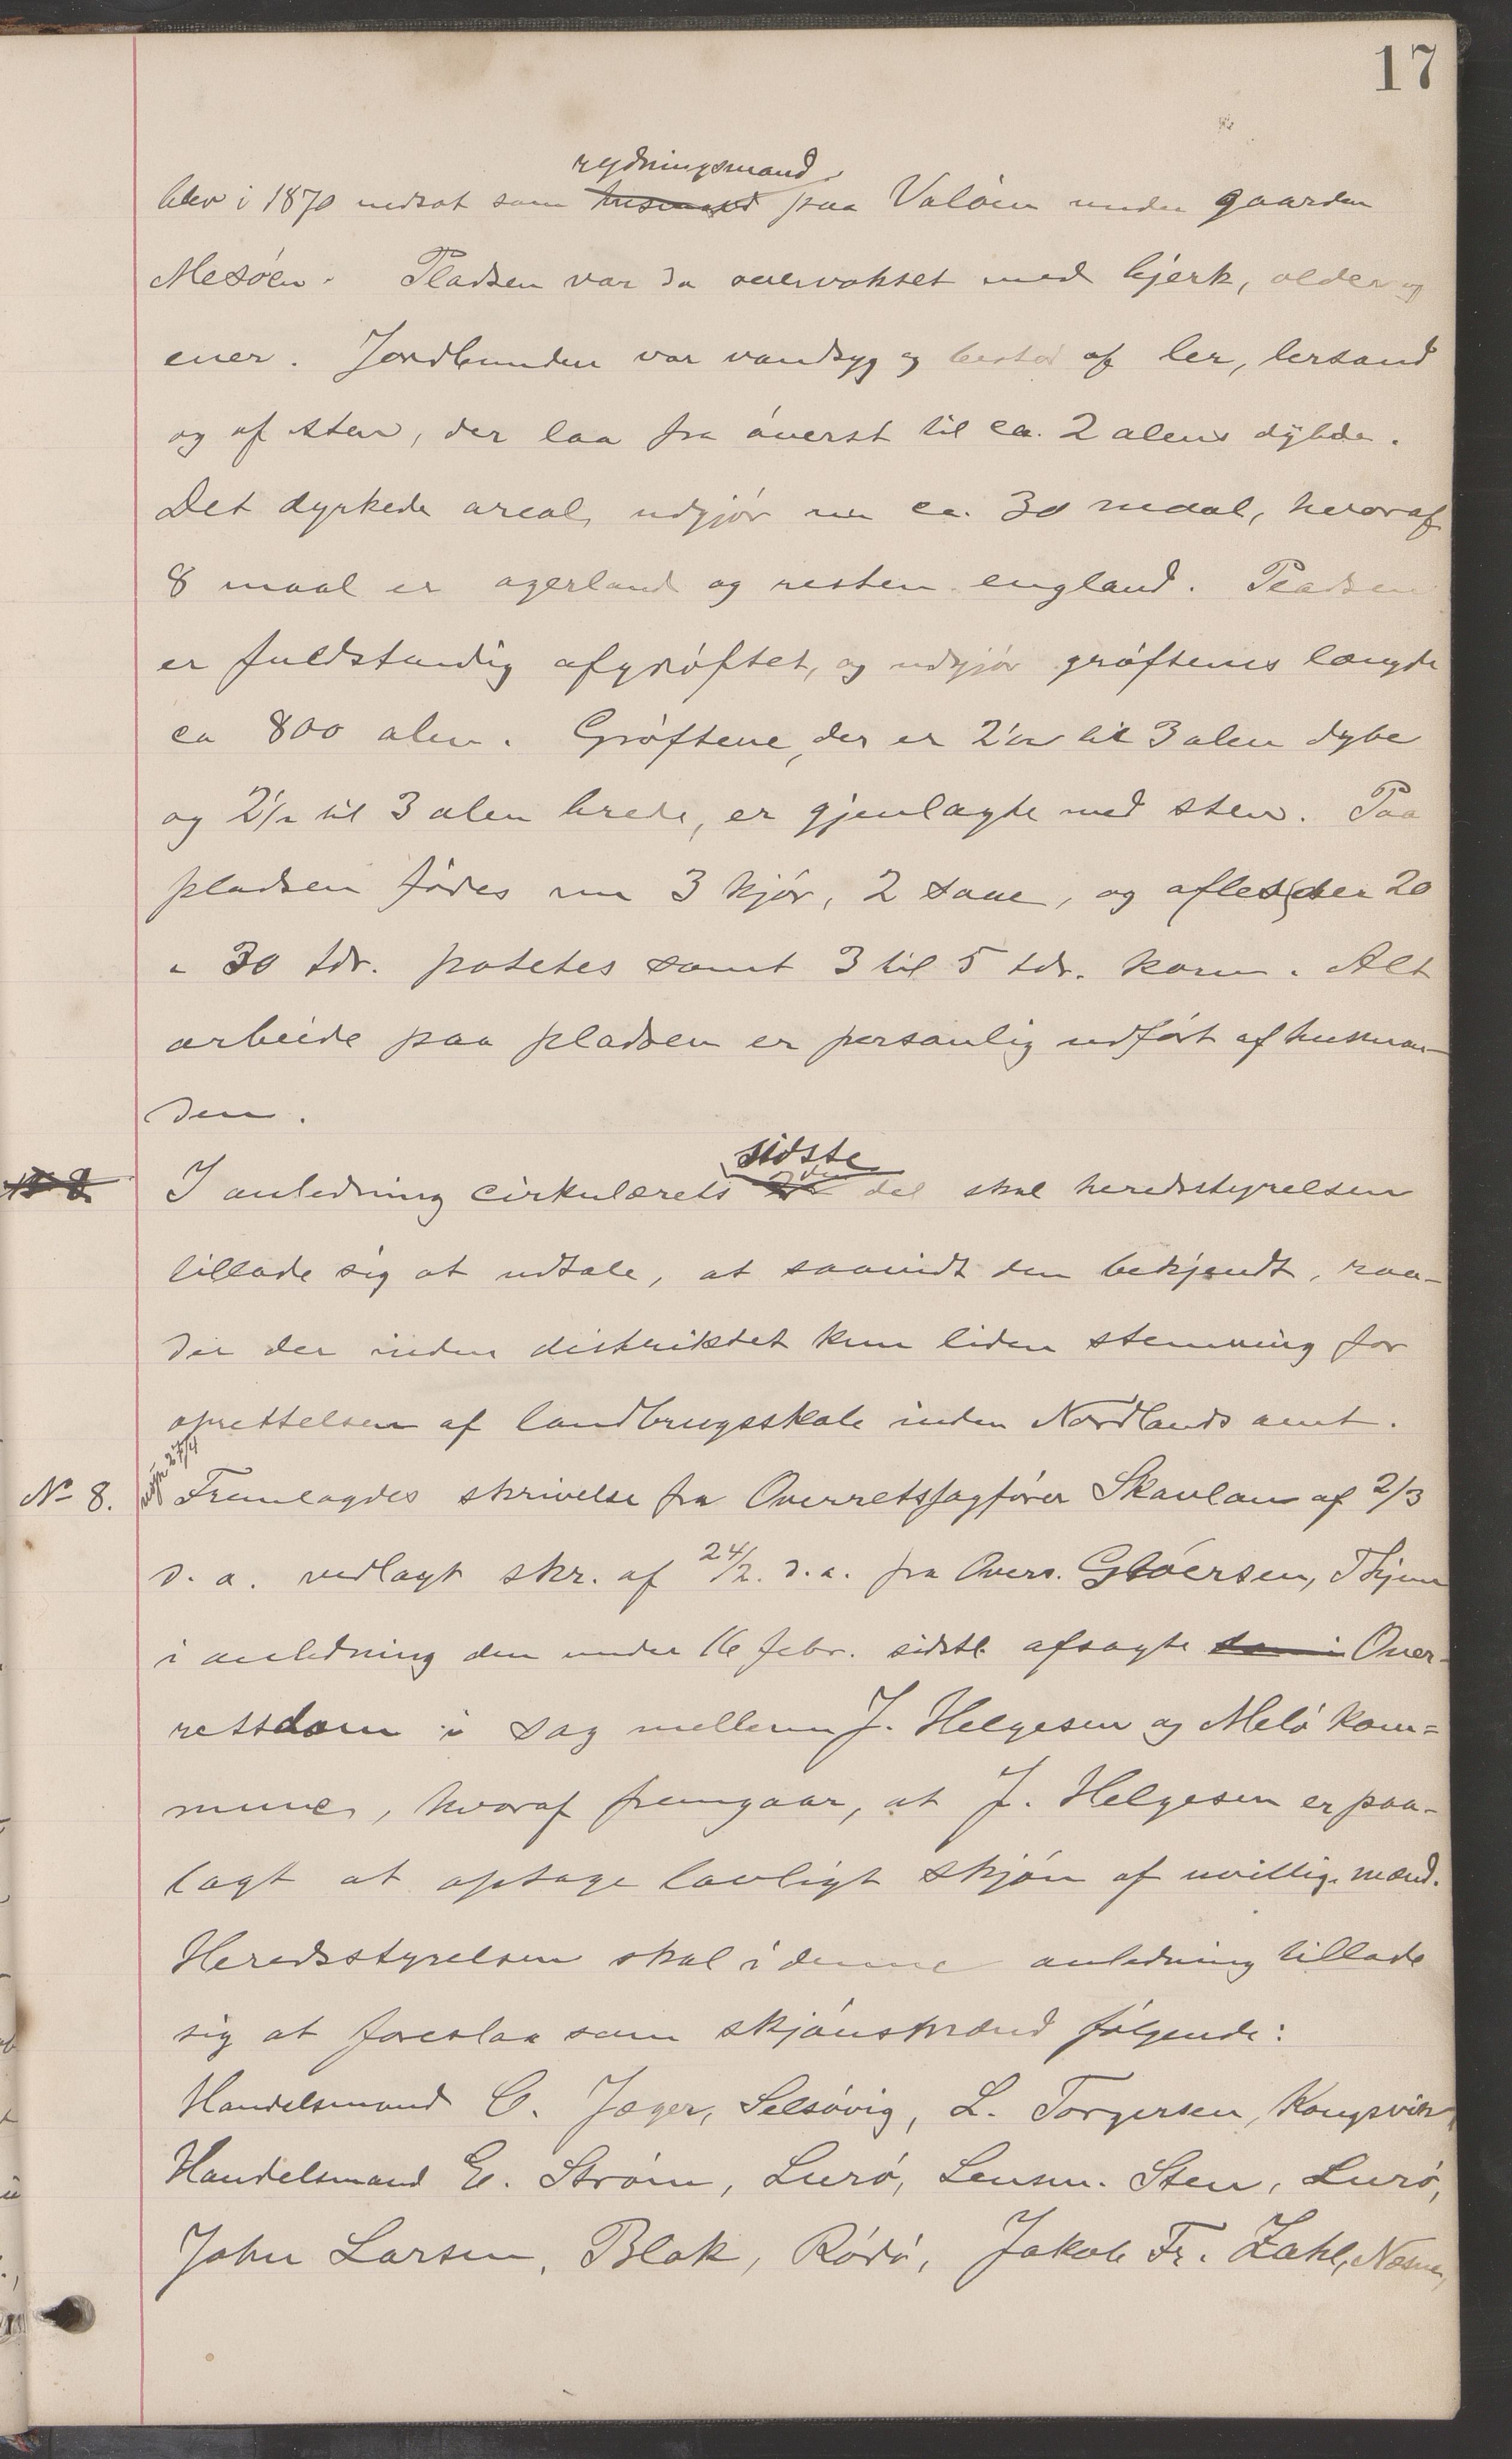 17
rydningsmand
blev i 1870 nedsat som husmand paa Valøen under gaarden
Mesøen. Pladsen var da overvokset med bjerk, older og
ener. Jordbunden var vandsyg og bestod af ler, lersand
og af sten, der laa fra øverst til ca. 2 alens dybde.
Det dyrkede areal, udgjør nu ca. 30 maal, hvoraf
8 maal er agerland og resten england. Pladsen
er fuldstændig afgrøftet, og udgjør grøfternes længde
ca 800 alen. Grøftene, der er 2 1/2 til 3 alen dybe
og 2 1/2 til 3 alen brede, er gjenlagte med sten. Paa
pladsen fødes nu 3 kjør, 2 saue, og afles der 20
a 30 tdr. potetes samt 3 til 5 tdr. korn. Alt
arbeide paa pladsen er personlig udført af husman-
den.
sidste
I anledning cirkulærets del skal heredsstyrelsen
tillade sig at udtale, at saavidt den bekjendt, raa-
der der inden distriktet kun liden stemning for
oprettelsen af landbrugsskole inden Nordlands amt.
27/4
No 8. Fremlagdes skrivelse fra Overretssagfører Skavlan af 2/3
d. a. vedlagt skr. af 24/2. d. a. fra Overs. Gløersen, Thjem
i anledning den under 16 febr. sidstl. afsagte Over-
retsdom i sag mellem J. Helgesen og Melø kom=
mune, hvoraf fremgaar, at J. Helgesen er paa-
lagt at optage lovligt skjøn af uvillig. mænd.
Heredsstyrelsen skal i denne anledning tillade
sig at foreslaa som skjønsmænd følgende:
Handelsmand C. Jæger, Selsøvig, L. Torgersen, Kongsvik
Handelsmand E. Strøm, Lurø, Lensm. Sten, Lurø,
John Larsen, Blok, Rødø, Jakob Fr. Zahl, Næsne,